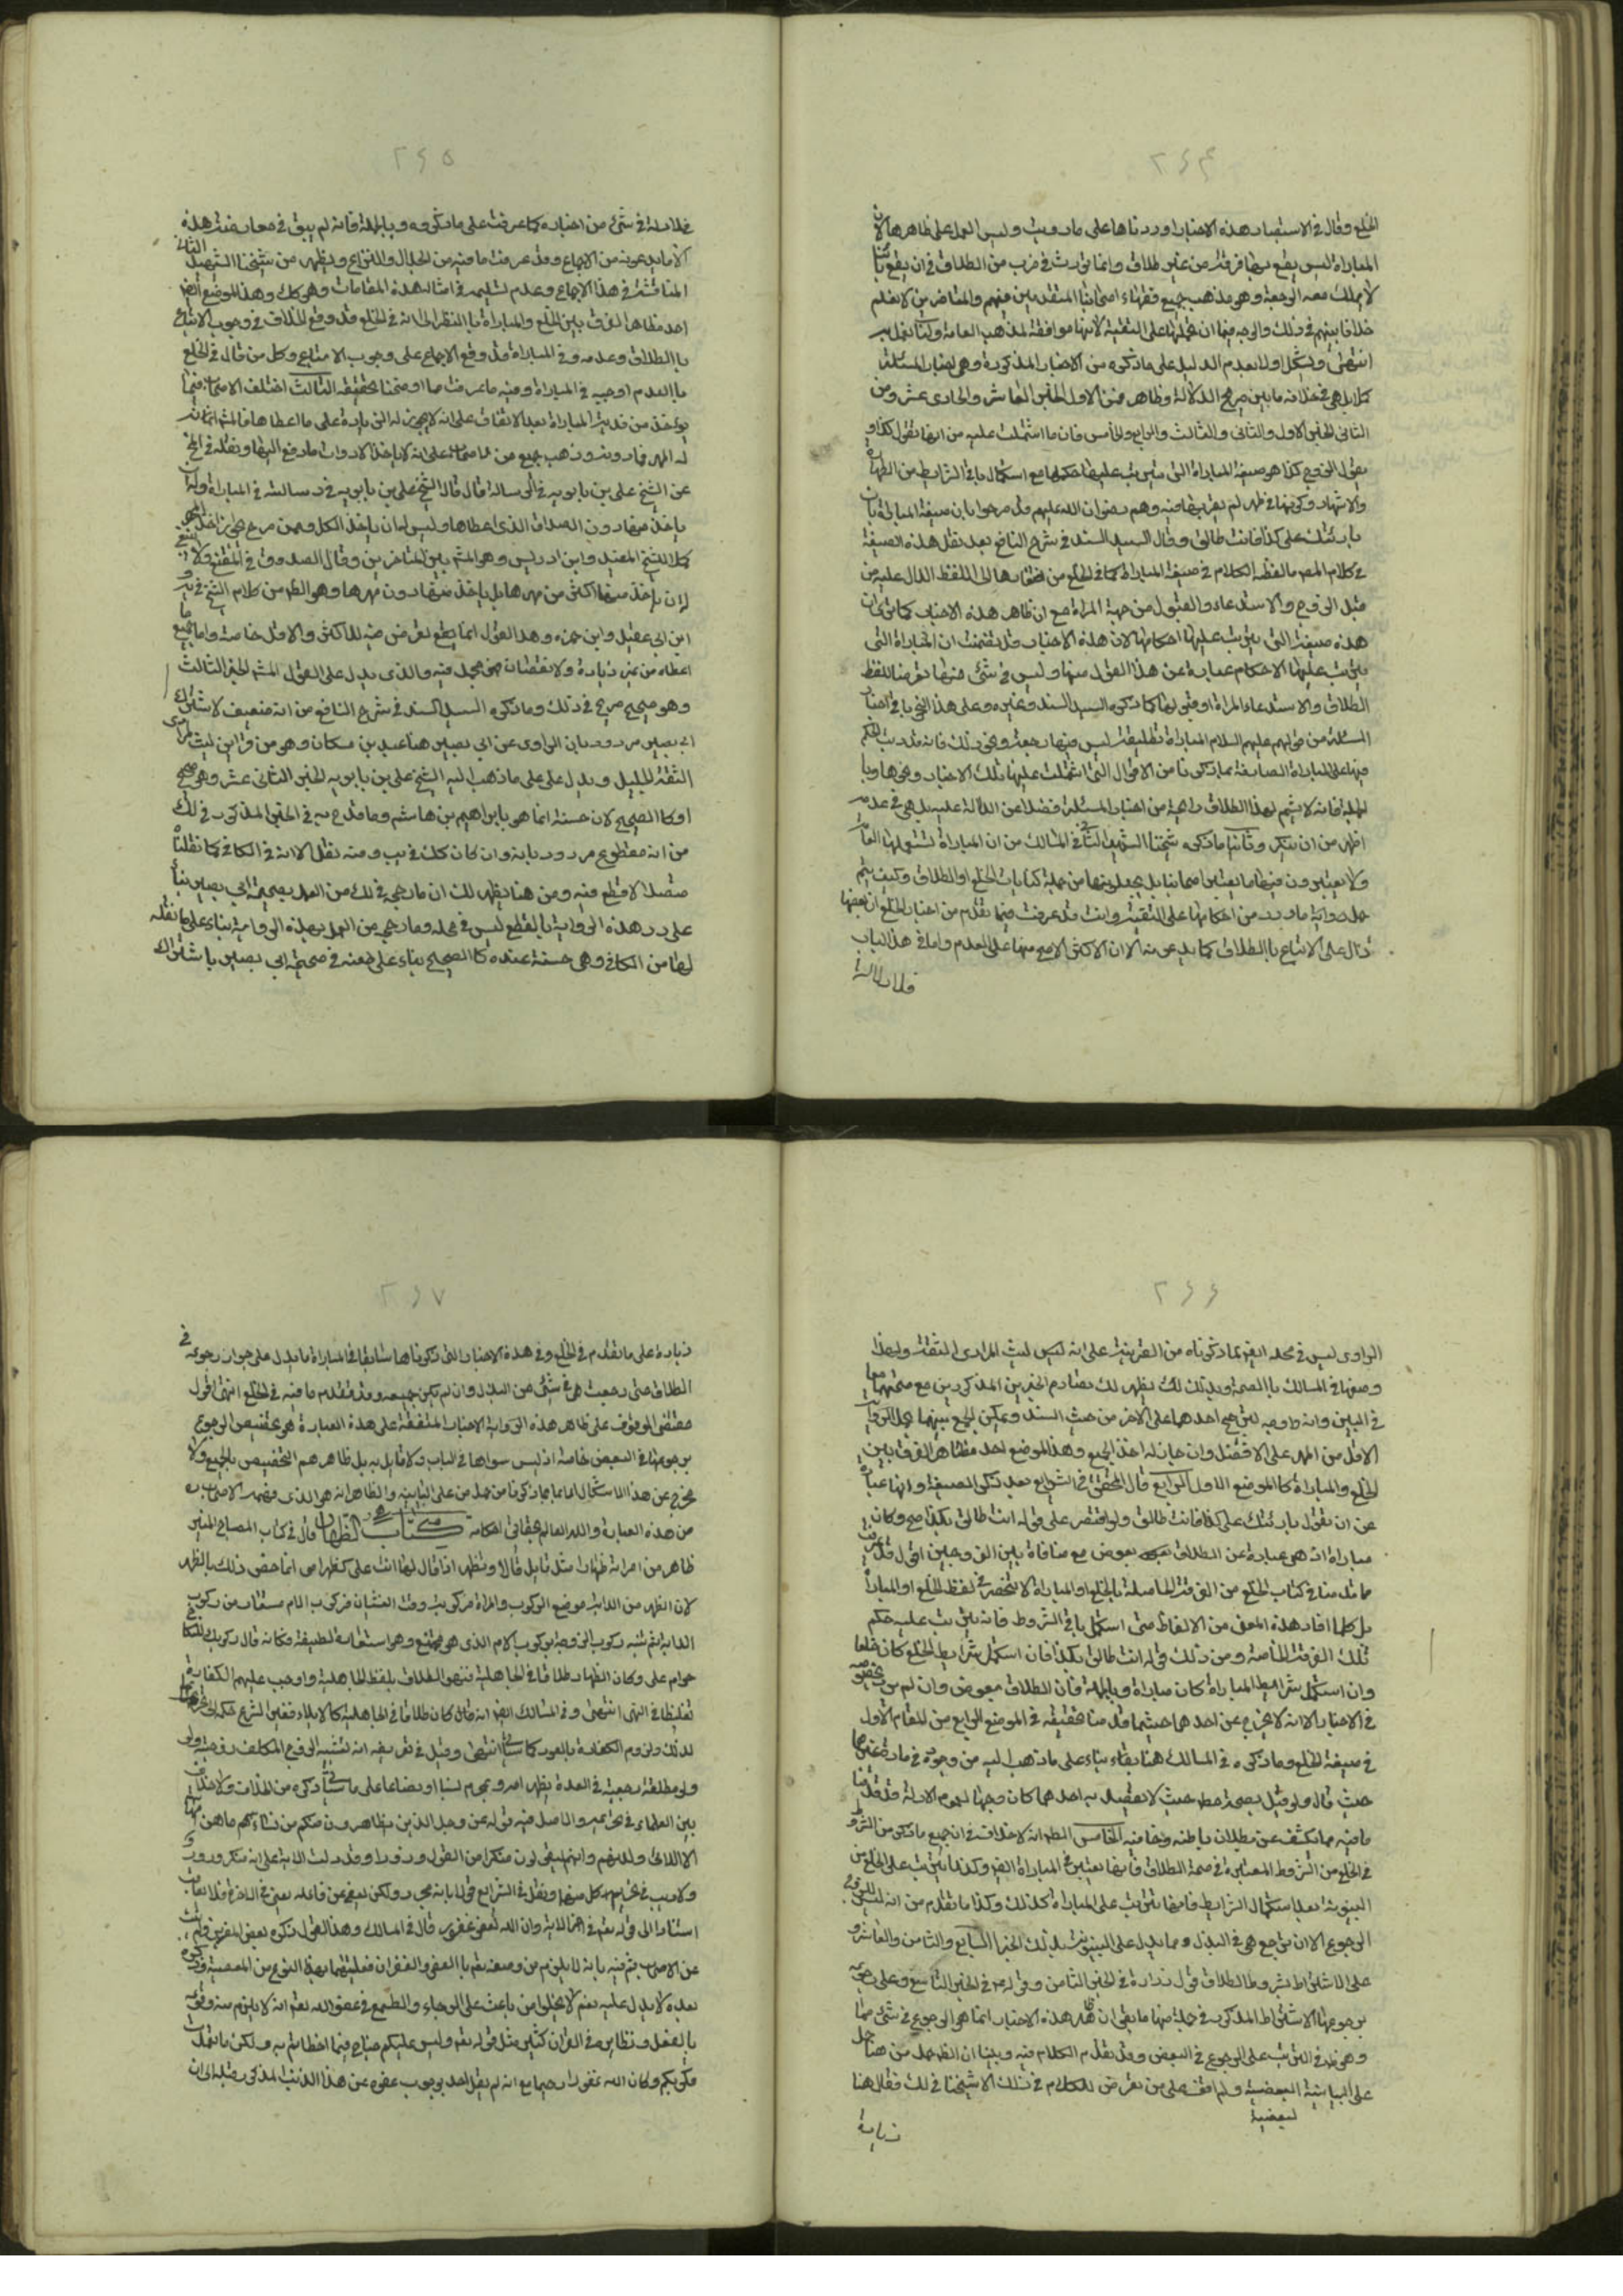 ٢٦٤
الخلع وقال في الاستبصار هذه الاخبار اوردناها على ما رويت وليس العمل على ظاهرها لان
المباراة ليس يقع بها فرقة من غير طلاق وانما تؤثر في ضرب من الطلاق في ان يقع بائنا
لا يملك معه الرجعة وهو مذهب جميع فقهاء اصحابنا المتقدمين منهم والمتاخرين لا نعلم
خلافا بينهم في ذلك والوجه فيها ان نحملها على التقية لانها موافقة لمذهب العامة ولسنا نعمل به
انتهى ويشكل اولا بعدم الدليل على ما ذكره من الاخبار المذكورة وهي اخبار المسئلة
كلا بل هي في خلافه ما بين صريح الدلالة وظاهر فمن الاول الخبر العاشر والحادي عشر ومن
الثاني الخبر الاول والثاني والثالث والرابع والخامس فان ما اشتملت عليه من انها تقول كذا و
يقول الزوج كذا هو صيغة المباراة التي يترتب عليها حكمها مع استكمال باقي الشرايط من الطهارة
والاشهاد وكونها في طهر لم يقربها فيه وهم رضوان الله عليهم قد صرحوا بان صيغة المباراة بان
بارئتك على كذا فانت طالق وقال السيد السند في شرح النافع بعد نقل هذه الصيغة
في كلام المصنف ما لفظه الكلام في صيغة المباراة كما في الخلع من افتقارها الى اللفظ الدال عليه من
قبل الزوج والاستدعاء والقبول من جهة المراة مع ان ظاهر هذه الاخبار كما ترى ان
هذه صيغة التي يترتب عليها احكامها لان هذه الاخبار قد تضمنت ان المباراة التي
يترتب عليها الاحكام عبارة عن هذا القول منها وليس في شئ منها تعرضا للفظ
الطلاق والاستدعاء المراة او قبولها كما ذكره السيد السند وغيره وعلى هذا النحو باقي اخبار
المسئلة من قولهم عليهم السلام المباراة تطليقة ليس فيها رجعة ونحو ذلك فانه قد رتب الحكم
فيها على المباراة الصادقة بما ذكرنا من الاقوال التي اشتملت عليها تلك الاخبار ونحوها وبا
لجملة فانه لا يشم لهذا الطلاق رائحة من اخبار المسئلة فضلا عن الدلالة عليه بل هي في عدمه
اظهر من ان ينكر وثانيا ما ذكره شيخنا الشهيد الثاني في المسالك من ان المباراة تستعملها العامة
ولا يعتبرون فيها ما يعتبره اصحابنا بل يجعلونها من جملة كنايات الخلع او الطلاق وكيف يتم
حمل رواية ما ورد من احكامها على التقية وانت قد عرفت فيما تقدم من اخبار الخلع ان بعضها
دال على الاتباع بالطلاق كما يدعونه الا ان الاكثر الاصح منها على العدم واما في هذا الباب
فلا دلالة
٢٦٥
فلا دلالة في شئ من اخباره كما عرفت على ما ذكروه وبالجملة فانه لم يبق في معارضة هذه
الا ما يدعونه من الاجماع وقد عرفت ما فيه من الجدال والنزاع ويظهر من شيخنا الشهيد الثاني
المناقشة في هذا الاجماع وعدم تسليمه في امثال هذه المقامات وهو كك وهذا الموضع ايضا
احد مظاهر الفرق بين الخلع والمباراة بالنظر الى انه في الخلع قد وقع الخلاف في وجوب الاتباع
بالطلاق وعدمه وفي المباراة قد وقع الاجماع على وجوب الاتباع وكل من قال في الخلع
بالعدم اوجبه في المباراة وفيه ما عرفت مما اوضحنا تحقيقه الثالث اختلف الاصحاب فيما
يؤخذ من فدية المباراة بعد الاتفاق على انه لا يجوز له الزيادة على ما اعطاها فالمشهور انما
له المهر فما دونه وذهب جميع من الاصحاب على انه لا ياخذ الا دون ما دفع اليها ونقله في المخ
عن الشيخ علي بن بابويه في الرسالة قال قال الشيخ علي بن بابويه في رسالته في المباراة وله ان
ياخذ منها دون الصداق الذي اعطاها وليس له ان ياخذ الكل وممن صرح بجواز اخذ المهر
كملا الشيخ المفيد وابن ادريس وهو المشهور بين المتاخرين وقال الصدوق في المقنع ولا ينبغي
له ان ياخذ منها اكثر من مهرها بل ياخذ منها دون مهرها وهو الظاهر من كلام الشيخ في يه و
ابن ابي عقيل وابن حمزه وهذا القول انما يقع تعرض فيه للاكثر والاقل خاصة واما جميع ما
اعطاه من غير زيادة ولا نقصان فهو مجمل فيه والذي يدل على القول المشهور الخبر الثالث
وهو صحيح صريح في ذلك وما ذكره السيد السند في شرح النافع من انه ضعيف لاشتراك
ابي بصير مردود بان الراوي عن ابي بصير هنا عبد بن مسكان وهو من قراين ليث المرادي
الثقة الجليل ويدل على ما ذهب اليه الشيخ علي بن بابويه الخبر الثاني عشر وهي صحيح
او كالصحيح لان حسنه انما هو بابراهيم بن هاشم وما قدح به في الخبر المذكور في لك
من انه مقطوع مردود بانه وان كان كذلك في يب ومنه نقل الا انه في الكافي كما نقلناه
متصلا لا قطع فيه ومن هنا يظهر لك ان ما رجحه في لك من العمل بصحيحة ابي بصير بناء
على رد هذه الرواية بالقطع ليس في محله وما رجح من العمل بهذه الرواية بناء على ما نقله
لها من الكافي وهي حسنة عنده كالصحيح بناء على طعنه في صحيحة ابي بصير باشتراك
٢٦٦
الراوي ليس في محله ايضا بما ذكرناه من القرينة على انه ليس ليث المرادي الثقة ولهذا
وصفها في المسالك بالصحة وبذلك لك يظهر لك تصادم الخبرين المذكورين مع صحتهما معا
في البين وانه لا وجه لترجيح احدهما على الاخر من حيث السند ويمكن الجمع بينهما بحمل الرواية
الاقل من المهر على الافضل وان جاز له اخذ الجميع وهذا الموضع احد مظاهر الفرق بين
الخلع والمباراة كالموضع الاول الرابع قال المحقق في الشرايع بعد ذكر الصيغة وانها عبارة
عن ان تقول بارئتك على كذا فانت طالق ولو اقتصر على قوله انت طالق بكذا صح وكان
مباراة اذ هي عبارة عن الطلاق بعوض مع منافاة بين الزوجين اقول قد عرفت
مما قدمنا في كتاب الخلع من الفرقة الحاصلة بالخلع او المباراة لا ينحصر في لفظ الخلع او المباراة
بل كلما افاد هذه المعنى من الالفاظ متى استكمل باقي الشروط فانه يترتب عليه حكم
تلك الفرقة الخاصة ومن ذلك قوله انت طالق بكذا فان استكمل شرايط الخلع كان خلعا
وان استكمل شرايط المباراة كان مباراة وبالجملة فان الطلاق بعوض وان لم يرد بخصوصه
في الاخبار الا انه لا يخرج عن احدهما حسبما قدمنا تحقيقه في الموضع الرابع من المقام الاول
في صيغة الخلع وما ذكره في المسالك هنا بقاء بناء على ما ذهب اليه من وجوده في مادة غيرهما
حيث قال ولو قيل بصحته مطلقا حيث لا يقصد به احدهما كان وجها لعموم الادلة وقد قدمنا
ما فيه مما يكشف عن بطلان باطنه وخافيه الخامس الظاهر انه لا خلاف في ان جميع ما ذكر من الشروط
في الخلع من الشروط المعتبرة في صحة الطلاق فانها يعتبر في المباراة ايضا وكذلك يترتب على الخلع من
البينونة بعد استكمال الشرايط فانها تترتب على المباراة كذلك وكذا ما تقدم من انه ليس للزوج
الرجوع الا ان ترجع هي في البذل ومما يدل على البينونة بذلك الخبر السابع والثامن والعاشر و
على الاشتراط بشروط الطلاق قول زرارة في الخبر الثامن وقوله ع في الخبر التاسع وعلى رجوعه
برجوعها الاشتراط المذكور في جملة منها ما بقي ان ظاهر هذه الاخبار انما هو الرجوع في شئ مما
وهي ظاهر في الترتيب على الرجوع في البعض وقد تقدم الكلام فيه وبينا ان الظاهر حمل من هنا
على البيانية البعضية ولم اقف على من تعرض للكلام في ذلك الا شيخنا في لك فقال هنا
لبعضية
زيادة
٢٦٧
زيادة على ما تقدم في الخلع وفي هذه الاخبار التي ذكرناها سابقا في المباراة ما يدل على جواز رجوعه في
الطلاق متى رجعت هي في شئ من البذل وان لم يكن جميعه وقد تقدم ما فيه في الخلع انتهى اقول
مقتضى الوقوف على ظاهر هذه الرواية الاخبار المتفقة على هذه العبارة هو تخصيص الرجوع
برجوعها في البعض خاصة اذ ليس سواها في الباب ولا قايل به بل ظاهرهم التخصيص بالجميع ولا
مخرج عن هذا الاشكال الا بما ذكرنا من حمل من على البيانية والظاهر انه هو الذي فهمه الاصحاب
من هذه العبارة والله العالم بحقايق احكامه كتاب الظهار قال في كتاب المصباح المنير
ظاهر من امراته ظهارا مثل قاتل قتالا وتظهر اذا قال لها انت علي كظهر امي انما خص ذلك بالظهر
لان الظهر من الدابة موضع الركوب والمراة مركوبة وقت الغشيان فركوب الام مستعار من ركوب
الدابة ثم شبه ركوب الزوجة بركوب الام الذي هو ممتنع وهو استعارة لطيفة فكانه قال ركوبك للنكاح
حرام علي وكان الظهار طلاقا في الجاهلية فنهوا الطلاق بلفظ الجاهلية واوجب عليهم الكفارة
تغليظا في النهي انتهى وفي المسالك ايضا انه قال كان طلاقا في الجاهلية كالايلاء فغير الشرع حكمه الى تحريمها
لذلك ولزوم الكفارة بالعود كما سياتي انتهى وقيل في تعريفه انه تشبيه الزوج المكلف زوجته ولو
ولو مطلقة رجعية في العدة بظهر امه ومحرم نسبا او رضاعا على ما سياتي ذكره من الخلاف ولا خلاف
بين العلماء في تحريمه والاصل فيه قوله عز وجل الذين يظاهرون منكم من نسائهم ما هن امهاتهم
الا اللائي ولدنهم وانهم ليقولون منكرا من القول وزورا وقد دلت الاية على انه منكر وزور و
ولا ريب في تحريم كل منهما ونقل في الشرايع قولا بانه محرم ولكن يعفى عن فاعله يعنى في الاخرة فلا يعاقب
استنادا الى قوله تعالى في اخر الاية وان الله لعفو غفور قال في المسالك وهذا القول ذكره بعض المفسرين ولم يثبت
عن الاصحاب ثم فيه بانه لا يلزم من وصفه تعالى بالعفو والغفران فعليتهما بهذا النوع من المعصية وذكره
بعده لا يدل عليه نعم لا يخلوا من باعث على الرجاء والطمع في عفو الله تعالى الا انه لا يلزم منه وقوعه
بالفعل ونظايره في القران كثير مثل قوله تعالى وليس عليكم جناح فيما اخطاتم به ولكن ما تعمدت
قلوبكم وكان الله غفورا رحيما مع انه لم يقل احد بوجوب عفوه عن هذا الذنب المذكور قبله الى ان